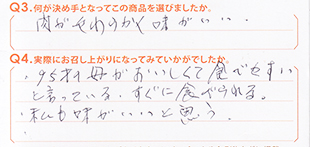 Q3.何が決め手となってこの商品を選びましたか。
肉がやわらかく味がいい.
Q4.実際にお召し上がりになってみていかがでしたか。
・95才の母がおいしくて食べやすい
と言っている。すぐに食べられる。
・私も味がいいと思う.